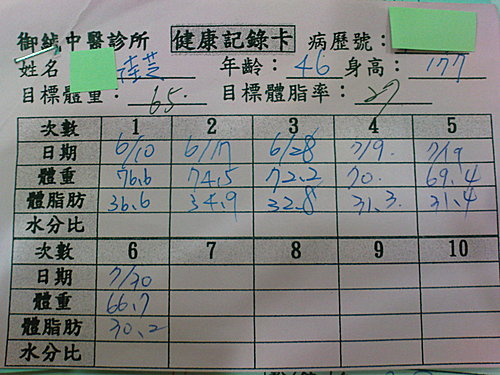 御絨中醫診所 健康記錄卡 病歷號：
姓名 佳芸 年齡：46 身高：177
目標體重：65. 目標體脂率：27
次數 1 2 3 4 5
日期 6/10 6/17 6/28 7/9. 7/19
體重 76.6 74.5 72.2 70. 69.4
體脂肪 36.6 34.9 32.8 31.3. 31.4
水分比
次數 6 7 8 9 10
日期 7/30
體重 66.7
體脂肪 30.2
水分比